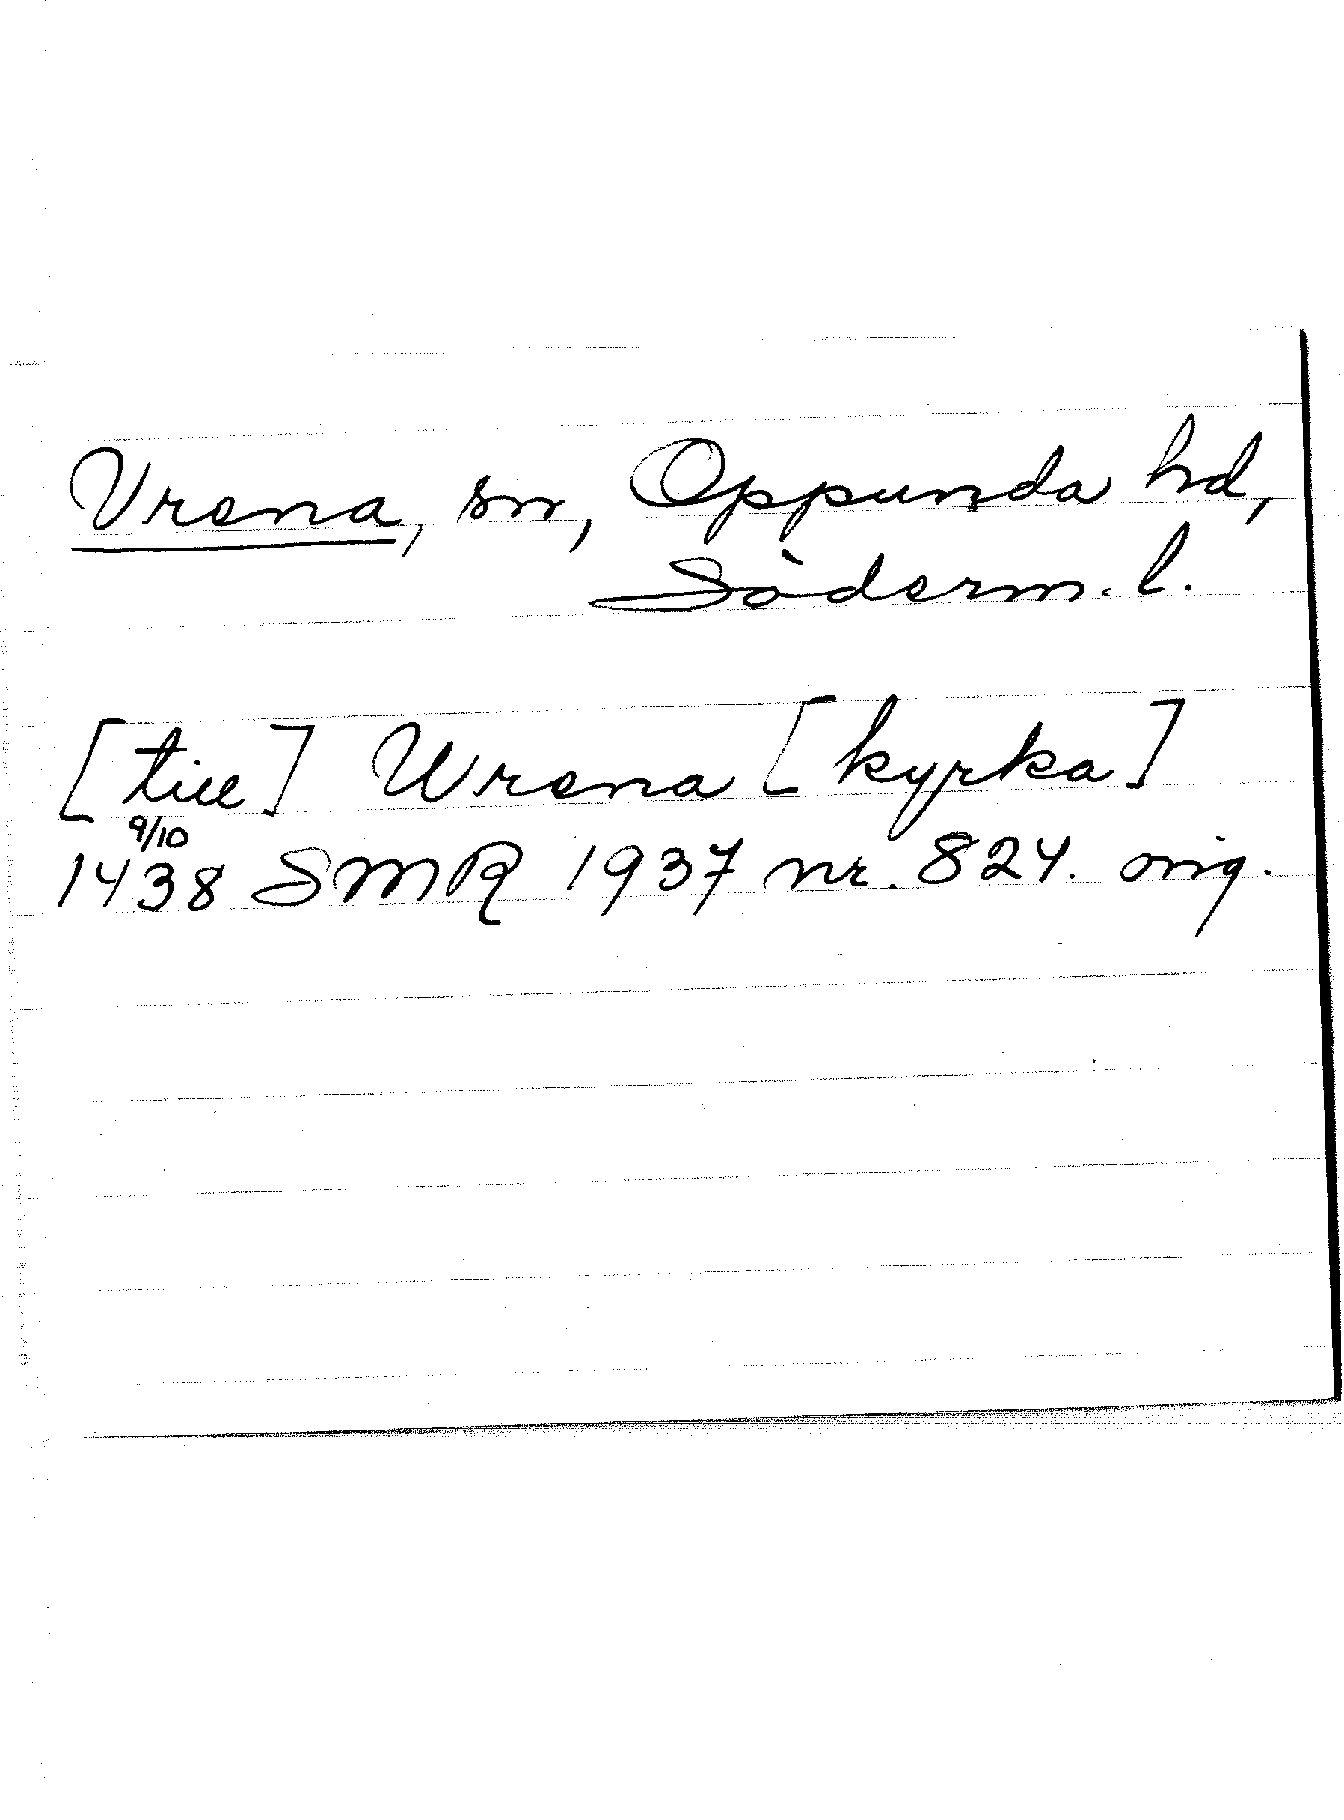 Vrena, sn, Oppunda hd,
Söderm. l.
[till] Wrena [kyrka]
9/10
1438 SMR 1937 nr. 824. orig.